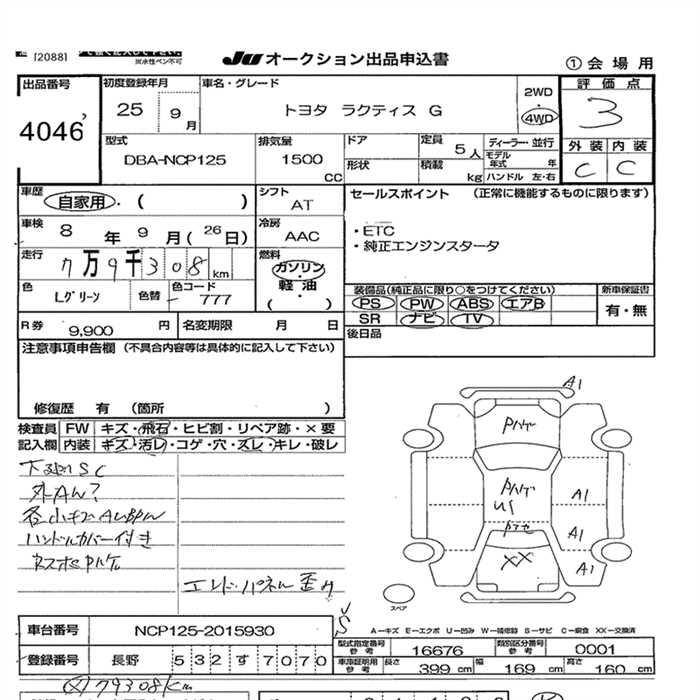 [2088]
※水性ペン不可
JU オークション出品申込書
①会場用
出品番号
4046
初度登録年月
25 9月
車名・グレード
トヨタ ラクティス G
2WD
4WD
評価点
3
外装 内装
C C
型式
DBA-NCP125
排気量
1500 CC
ドア
形状
定員
5人
積載
kg
ディーラー・並行
モデル年式 年
ハンドル 左・右
車歴
自家用・( )
シフト
AT
セールスポイント (正常に機能するものに限ります)
・ETC
・純正エンジンスタータ
車検
8年 9月(26日)
冷房
AAC
走行
7万9千308km
燃料
ガソリン・
軽油・
( )
色
Lグリーン
色替
色コード
777
装備品(純正品に限り○をつけてください)
PS PW ABS エアB
SR ナビ TV
新車保証書
有・無
後日品
R券
9,900円
名変期限 月 日
注意事項申告欄 (不具合内容等は具体的に記入して下さい)
修復歴 有 (箇所 )
検査員 FW キズ・飛石・ヒビ割・リペア跡・×要
記入欄 内装 キズ・汚レ・コゲ・穴・スレ・キレ・破レ
下廻りSC
外Aん?
各小キズAUBPん
ハンドルカバー付き
Rスポセ Pハゲ
エンドパネル歪み
A1
Pハゲ
Pハゲ
U1
A1
A1
XX
A1
スペア
S
A−キズ E−エクボ U−凹み W−補修跡 S−サビ C−腐食 XX−交換済
車台番号
NCP125-2015930
型式指定番号
参考
16676
類別区分番号
参考
0001
登録番号
長野 532 す 7070
車庫証明用
参考
長さ 399 cm 幅 169 cm 高さ 160 cm
79308Km